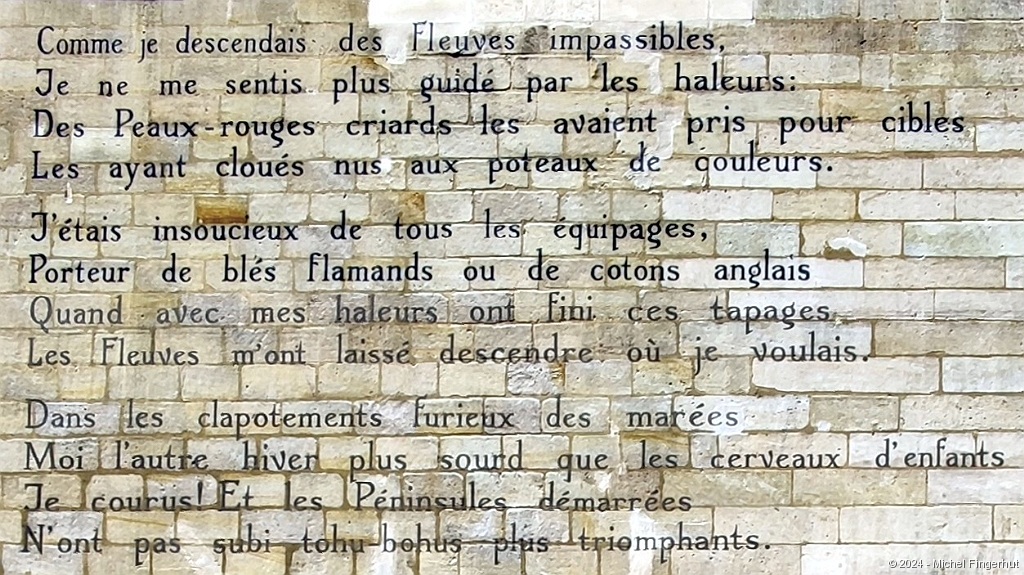 Comme je descendais des Fleuves impassibles,
Je ne me sentis plus guidé par les haleurs:
Des Peaux-rouges criards les avaient pris pour cibles
Les ayant cloués nus aux poteaux de couleurs.
J'étais insoucieux de tous les équipages,
Porteur de blés flamands ou de cotons anglais
Quand avec mes haleurs ont fini ces tapages
Les Fleuves m'ont laissé descendre où je voulais.
Dans les clapotements furieux des marées
Moi l'autre hiver plus sourd que les cerveaux d'enfants
Je courus! Et les Péninsules démarrées
N'ont pas subi tohu-bohus plus triomphants.
© 2024 - Michel Fingerhut